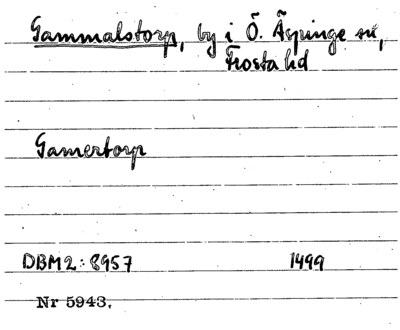 Gammalstorp, by i Ö. Äspinge sn,
Frosta hd
Gamertorp
DBM2: 8957 1499
Nr 5943.